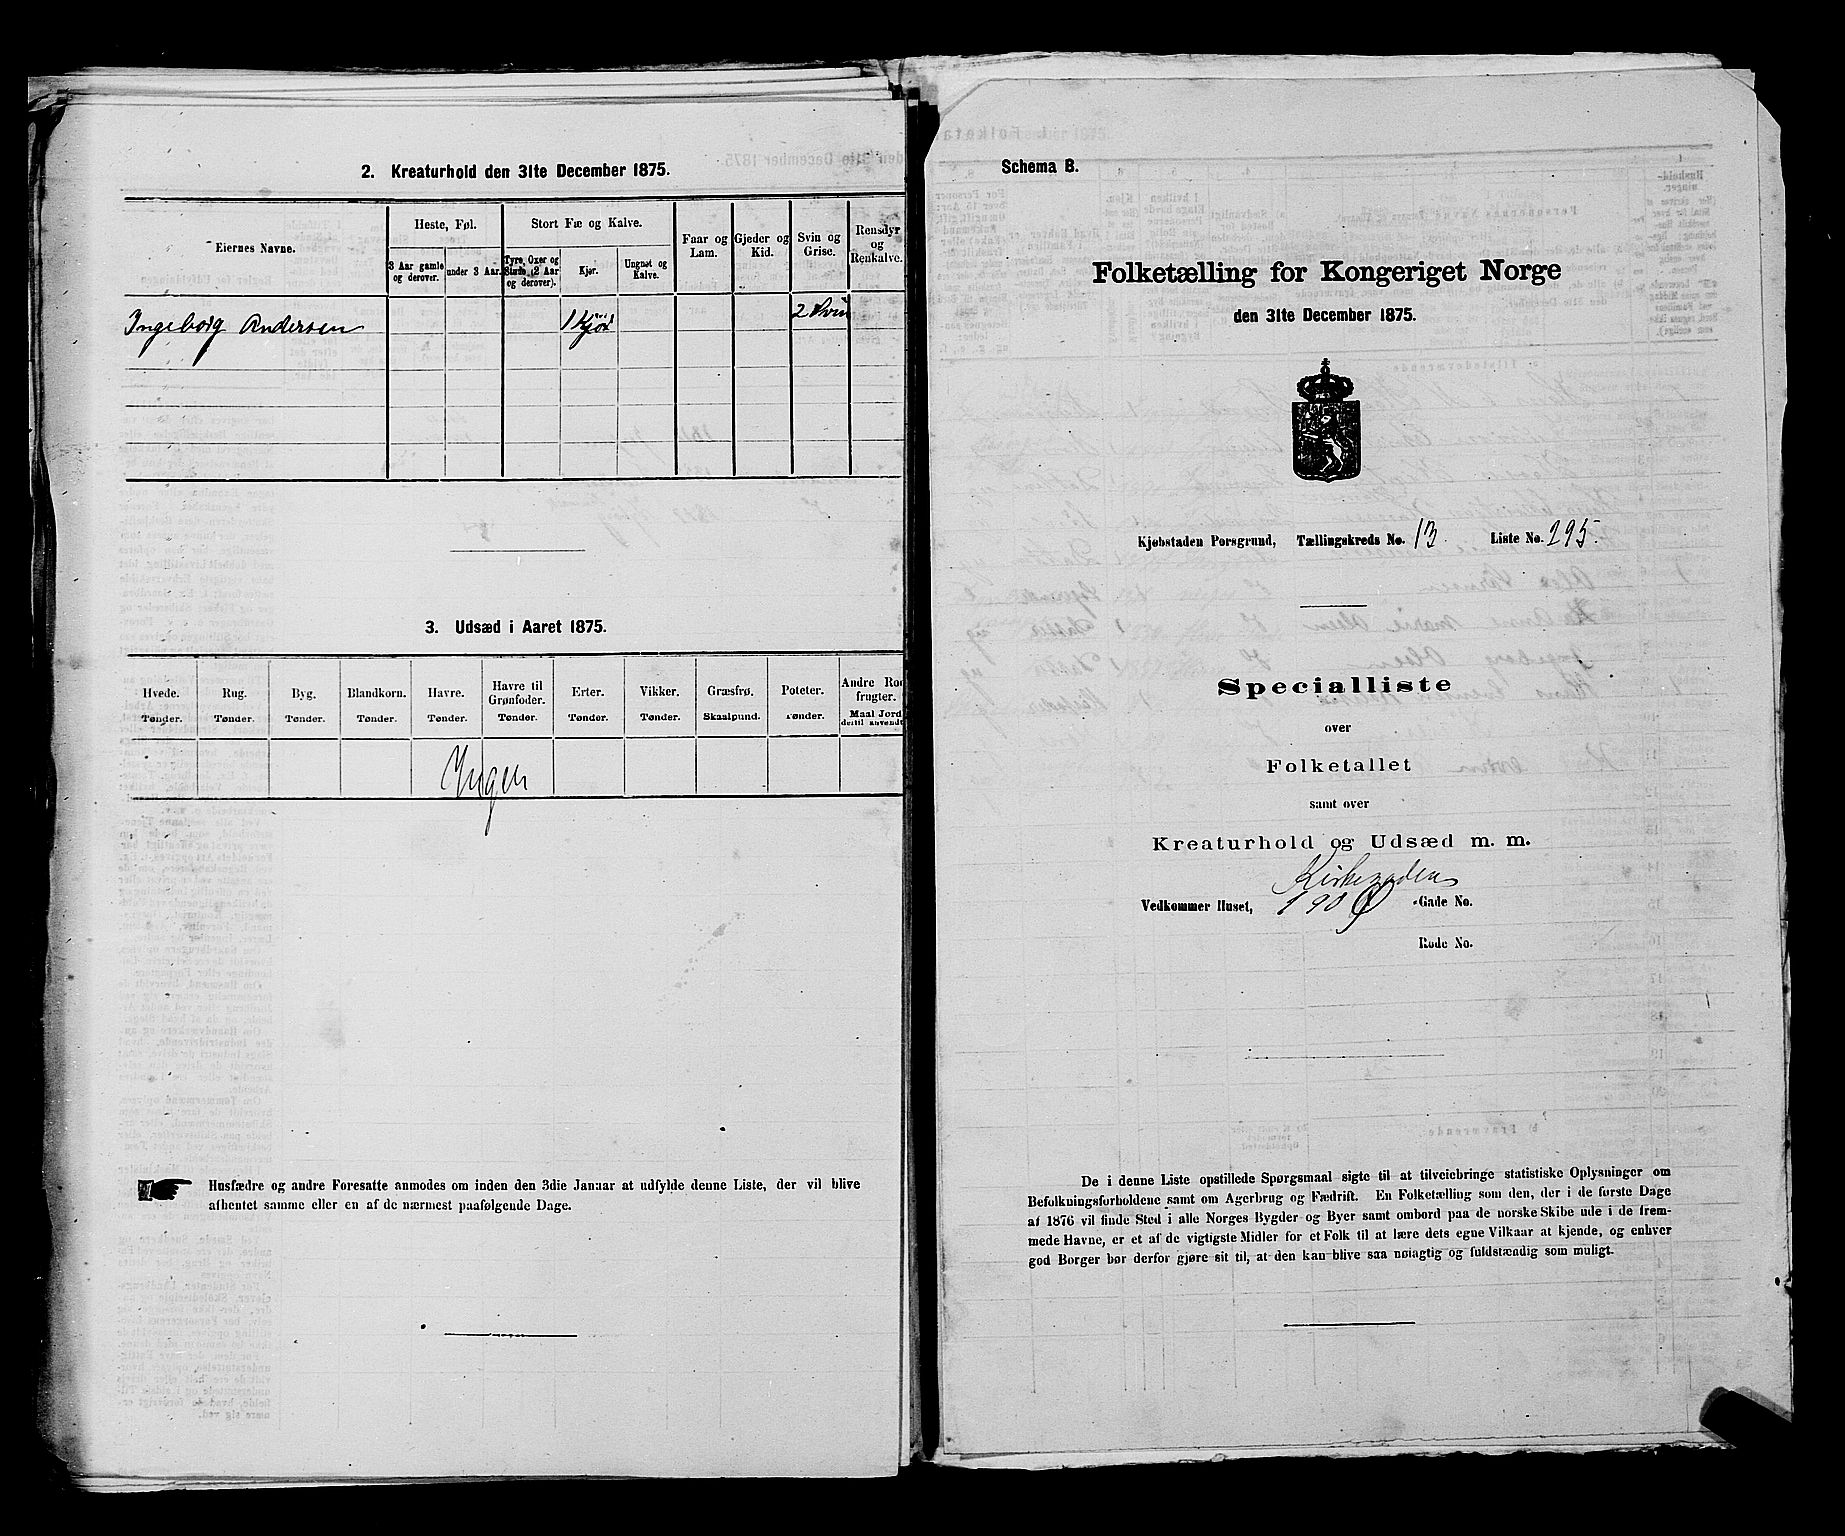 2. Kreaturhold den 31te December 1875.
Eiernes Navne.
Heste, Føl.
3 Aar gamle og derover.
under 3 Aar.
Stort Fæ og Kalve.
Tyre, Oxer og Stude (2 Aar og derover).
Kjør.
Ungnøt og Kalve.
Faar og Lam.
Gjeder og Kid.
Svin og Grise.
Rensdyr og Renkalve.
Ingeborg Andersen
1 Kjør
2 Svin
3. Udsæd i Aaret 1875.
Hvede. Rug. Byg. Blandkorn. Havre. Havre til Grønfoder. Erter. Vikker. Græsfrø. Poteter. Andre Rodfrugter.
Tønder. Tønder. Tønder. Tønder. Tønder. Tønder. Tønder. Tønder. Skaalpund. Tønder. Maal Jord dertil anvendt
Ingen
Husfædre og andre Foresatte anmodes om inden den 3die Januar at udfylde denne Liste, der vil blive
afhentet samme eller en af de nærmest paafølgende Dage.
Schema B.
Folketælling for Kongeriget Norge
den 31te December 1875.
Kjøbstaden Porsgrund, Tællingskreds No. 13 Liste No. 295.
Specialliste
over
Folketallet
samt over
Kreaturhold og Udsæd m. m.
Kirkegaden
Vedkommer Huset, 190 -Gade No.
Rode No.
De i denne Liste opstillede Spørgsmaal sigte til at tilveiebringe statistiske Oplysninger om
Befolkningsforholdene samt om Agerbrug og Fædrift. En Folketælling som den, der i de første Dage
af 1876 vil finde Sted i alle Norges Bygder og Byer samt ombord paa de norske Skibe ude i de frem-
mede Havne, er et af de vigtigste Midler for et Folk til at lære dets egne Vilkaar at kjende, og enhver
god Borger bør derfor gjøre sit til, at den kan blive saa nøiagtig og fuldstændig som muligt.